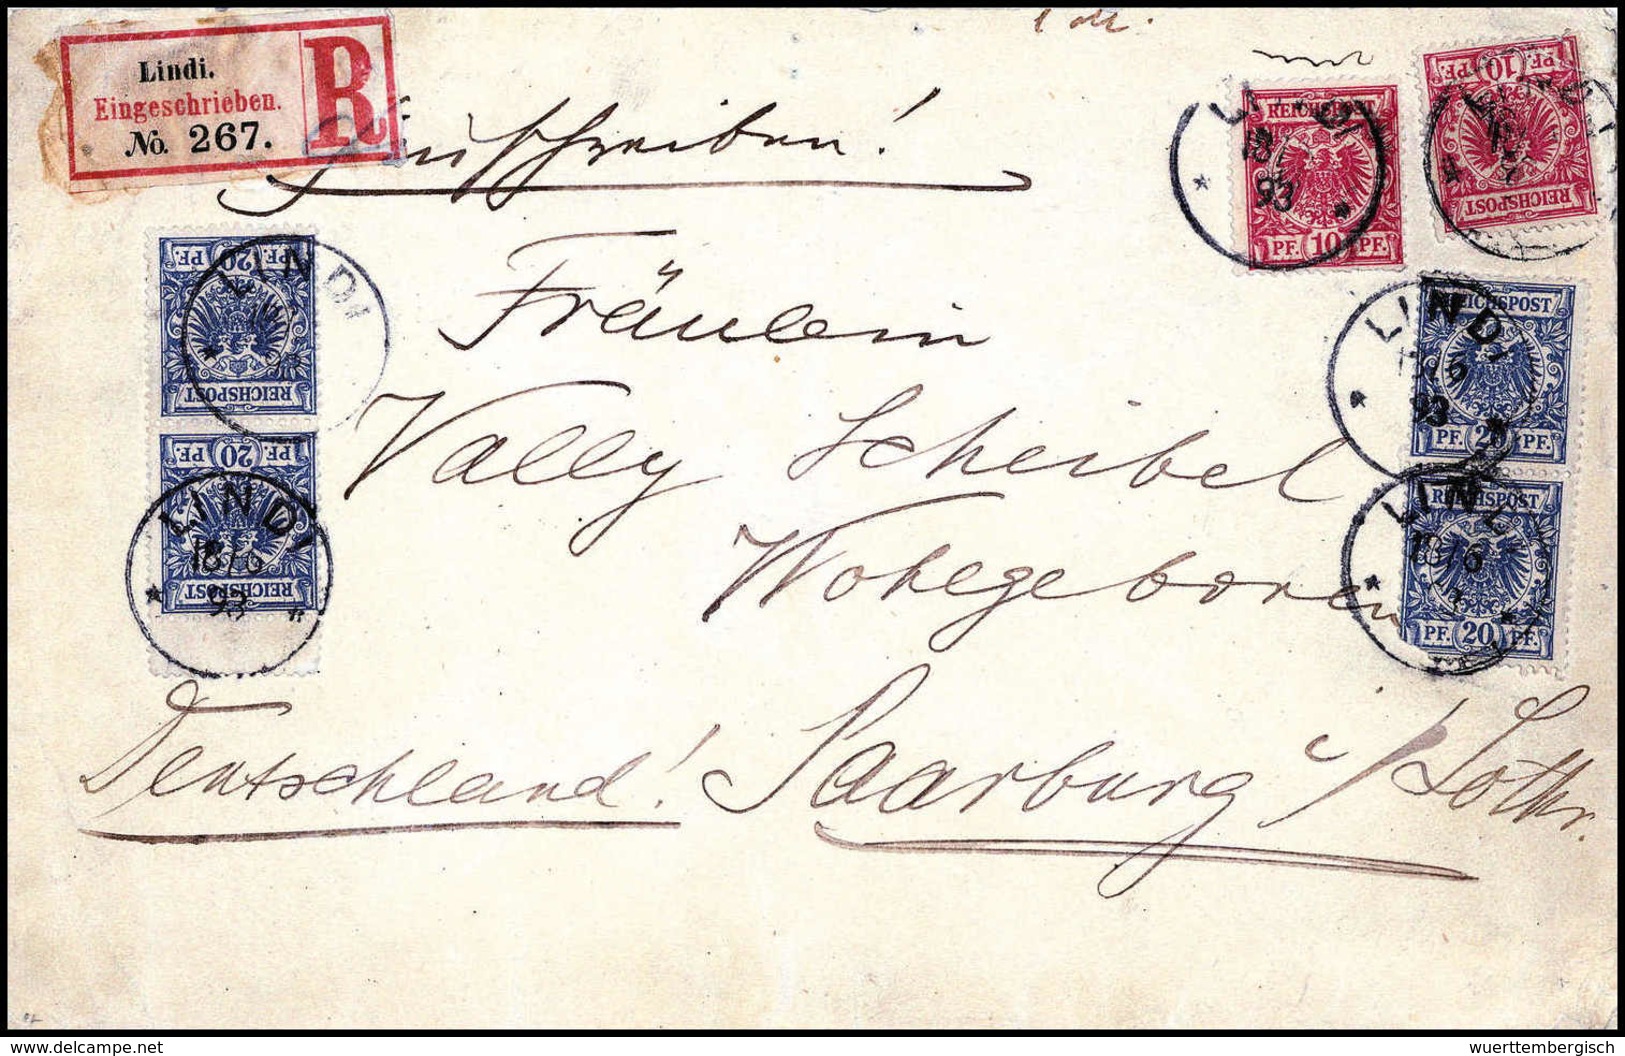 1 M.
Lindi.
Eingeschrieben.
No. 267.
R
Einschreiben!
Fräulein
Vally Scheibel
Wohlgeboren
Deutschland! Saarburg i/Lothr.
REICHSPOST
PF. 10 PF.
LINDI
18
93
PF. 10 PF.
REICHSPOST
LINDI
PF. 20 PF.
REICHSPOST
LINDI
PF. 20 PF.
REICHSPOST
LINDI
18/6
93
REICHSPOST
PF. 20 PF.
LINDI
18/6
93
REICHSPOST
PF. 20 PF.
LINDI
18/6
delcampe.net
wuerttembergisch